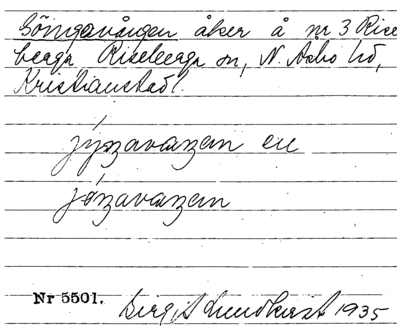 Göingavången åker å nr 3 Rise
berga Riseberga sn, N. Åsbo hd,
Kristianstads l.
jýŋavaŋen en
jóŋavaŋen
Nr 5501. Birgit Lundkvist 1935